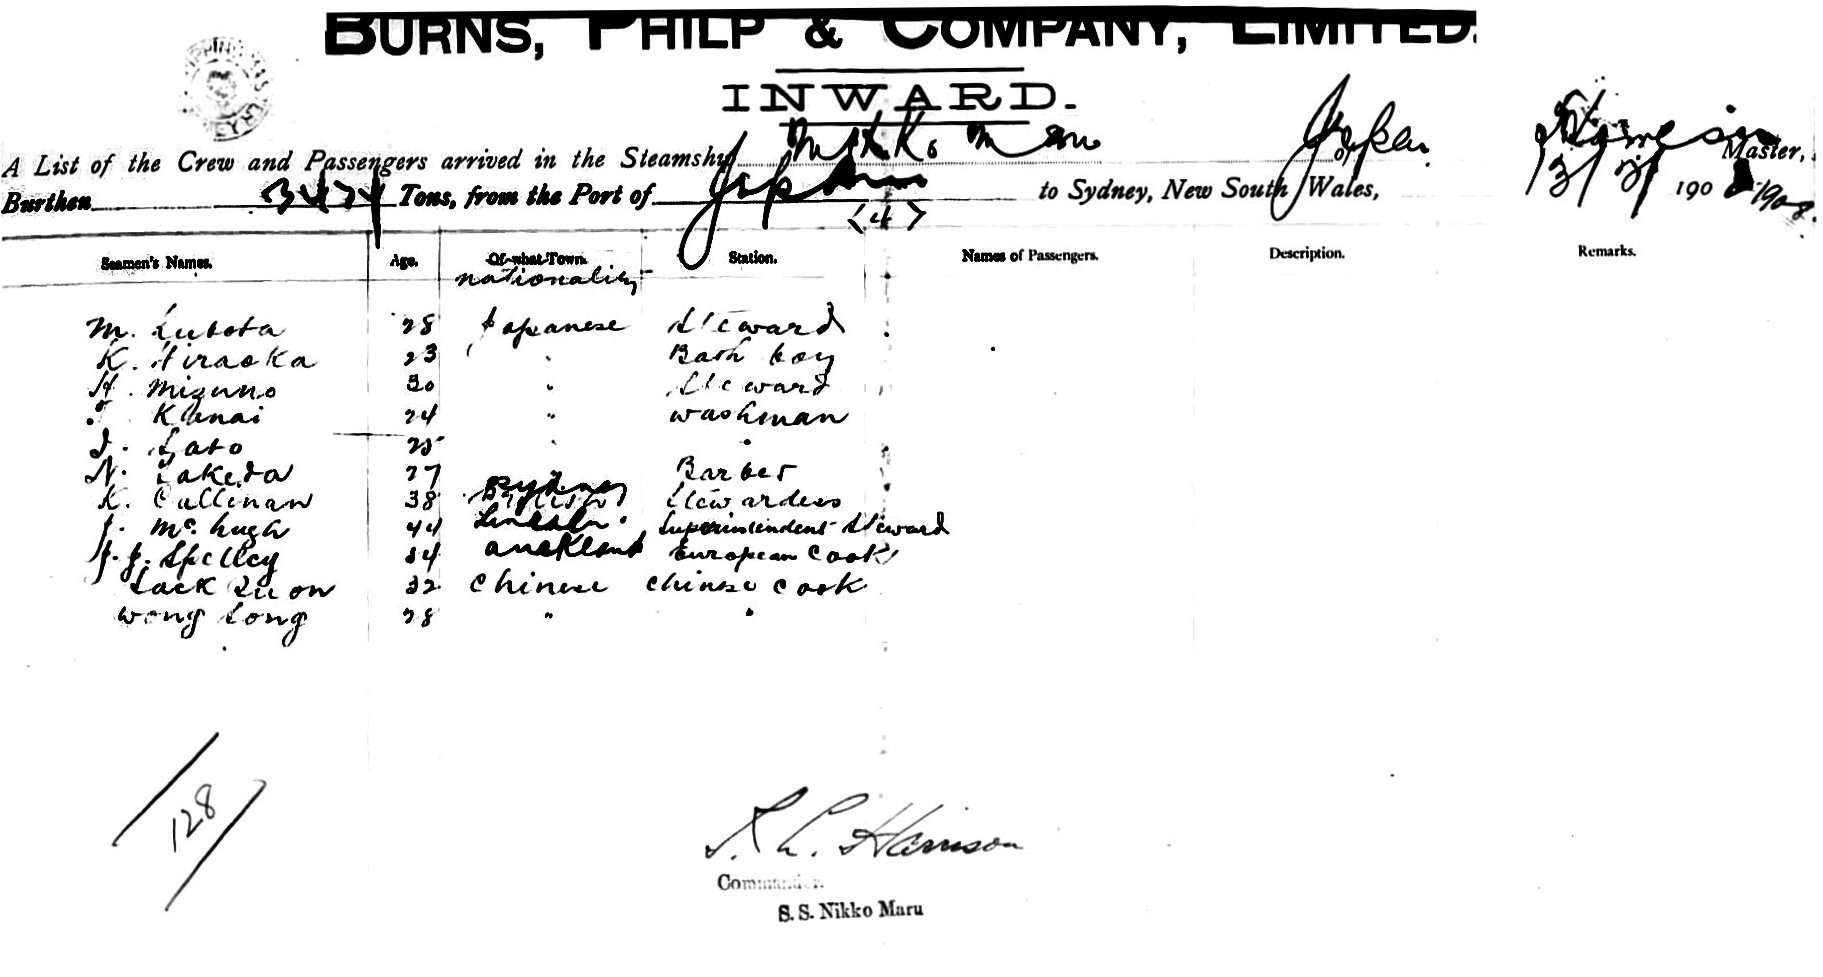 BURNS, PHILP & COMPANY, LIMITED.
INWARD.
A List of the Crew and Passengers arrived in the Steamship Nikko Maru of Japan Master,
Burthen 3434 Tons, from the Port of Japan to Sydney, New South Wales, 190 1908.
(4)
Seamen's Names. Age. Of what Town. Station. Names of Passengers. Description. Remarks.
nationality
M. Kubota 28 Japanese Steward
K. Hiraoka 23 " Bath boy
H. Mizuno 30 " Steward
T. Kanai 24 " washman
I. Sato 25 " "
N. Takeda 27 Barber
K. Cullinan 38 Sydney Stewardess
J. Mc. Hugh 44 Lincoln. Superintendent Steward
J. J. Spelley 34 Auckland European Cook
Lack Quon 32 Chinese Chinese Cook
Wong Long 28 " "
128
Harrison
Commander.
S. S. Nikko Maru